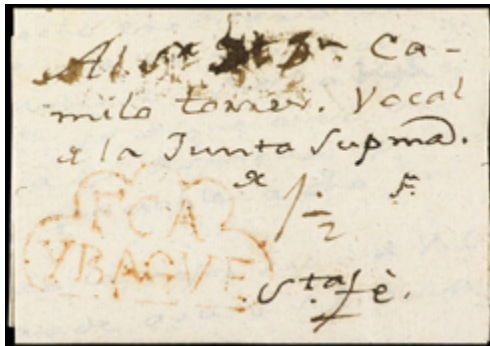 Al Sr Dr Dn Ca-
milo torres. Vocal
de la Junta Supma.
1/2
FCA
YBAGVE
Sta fè.